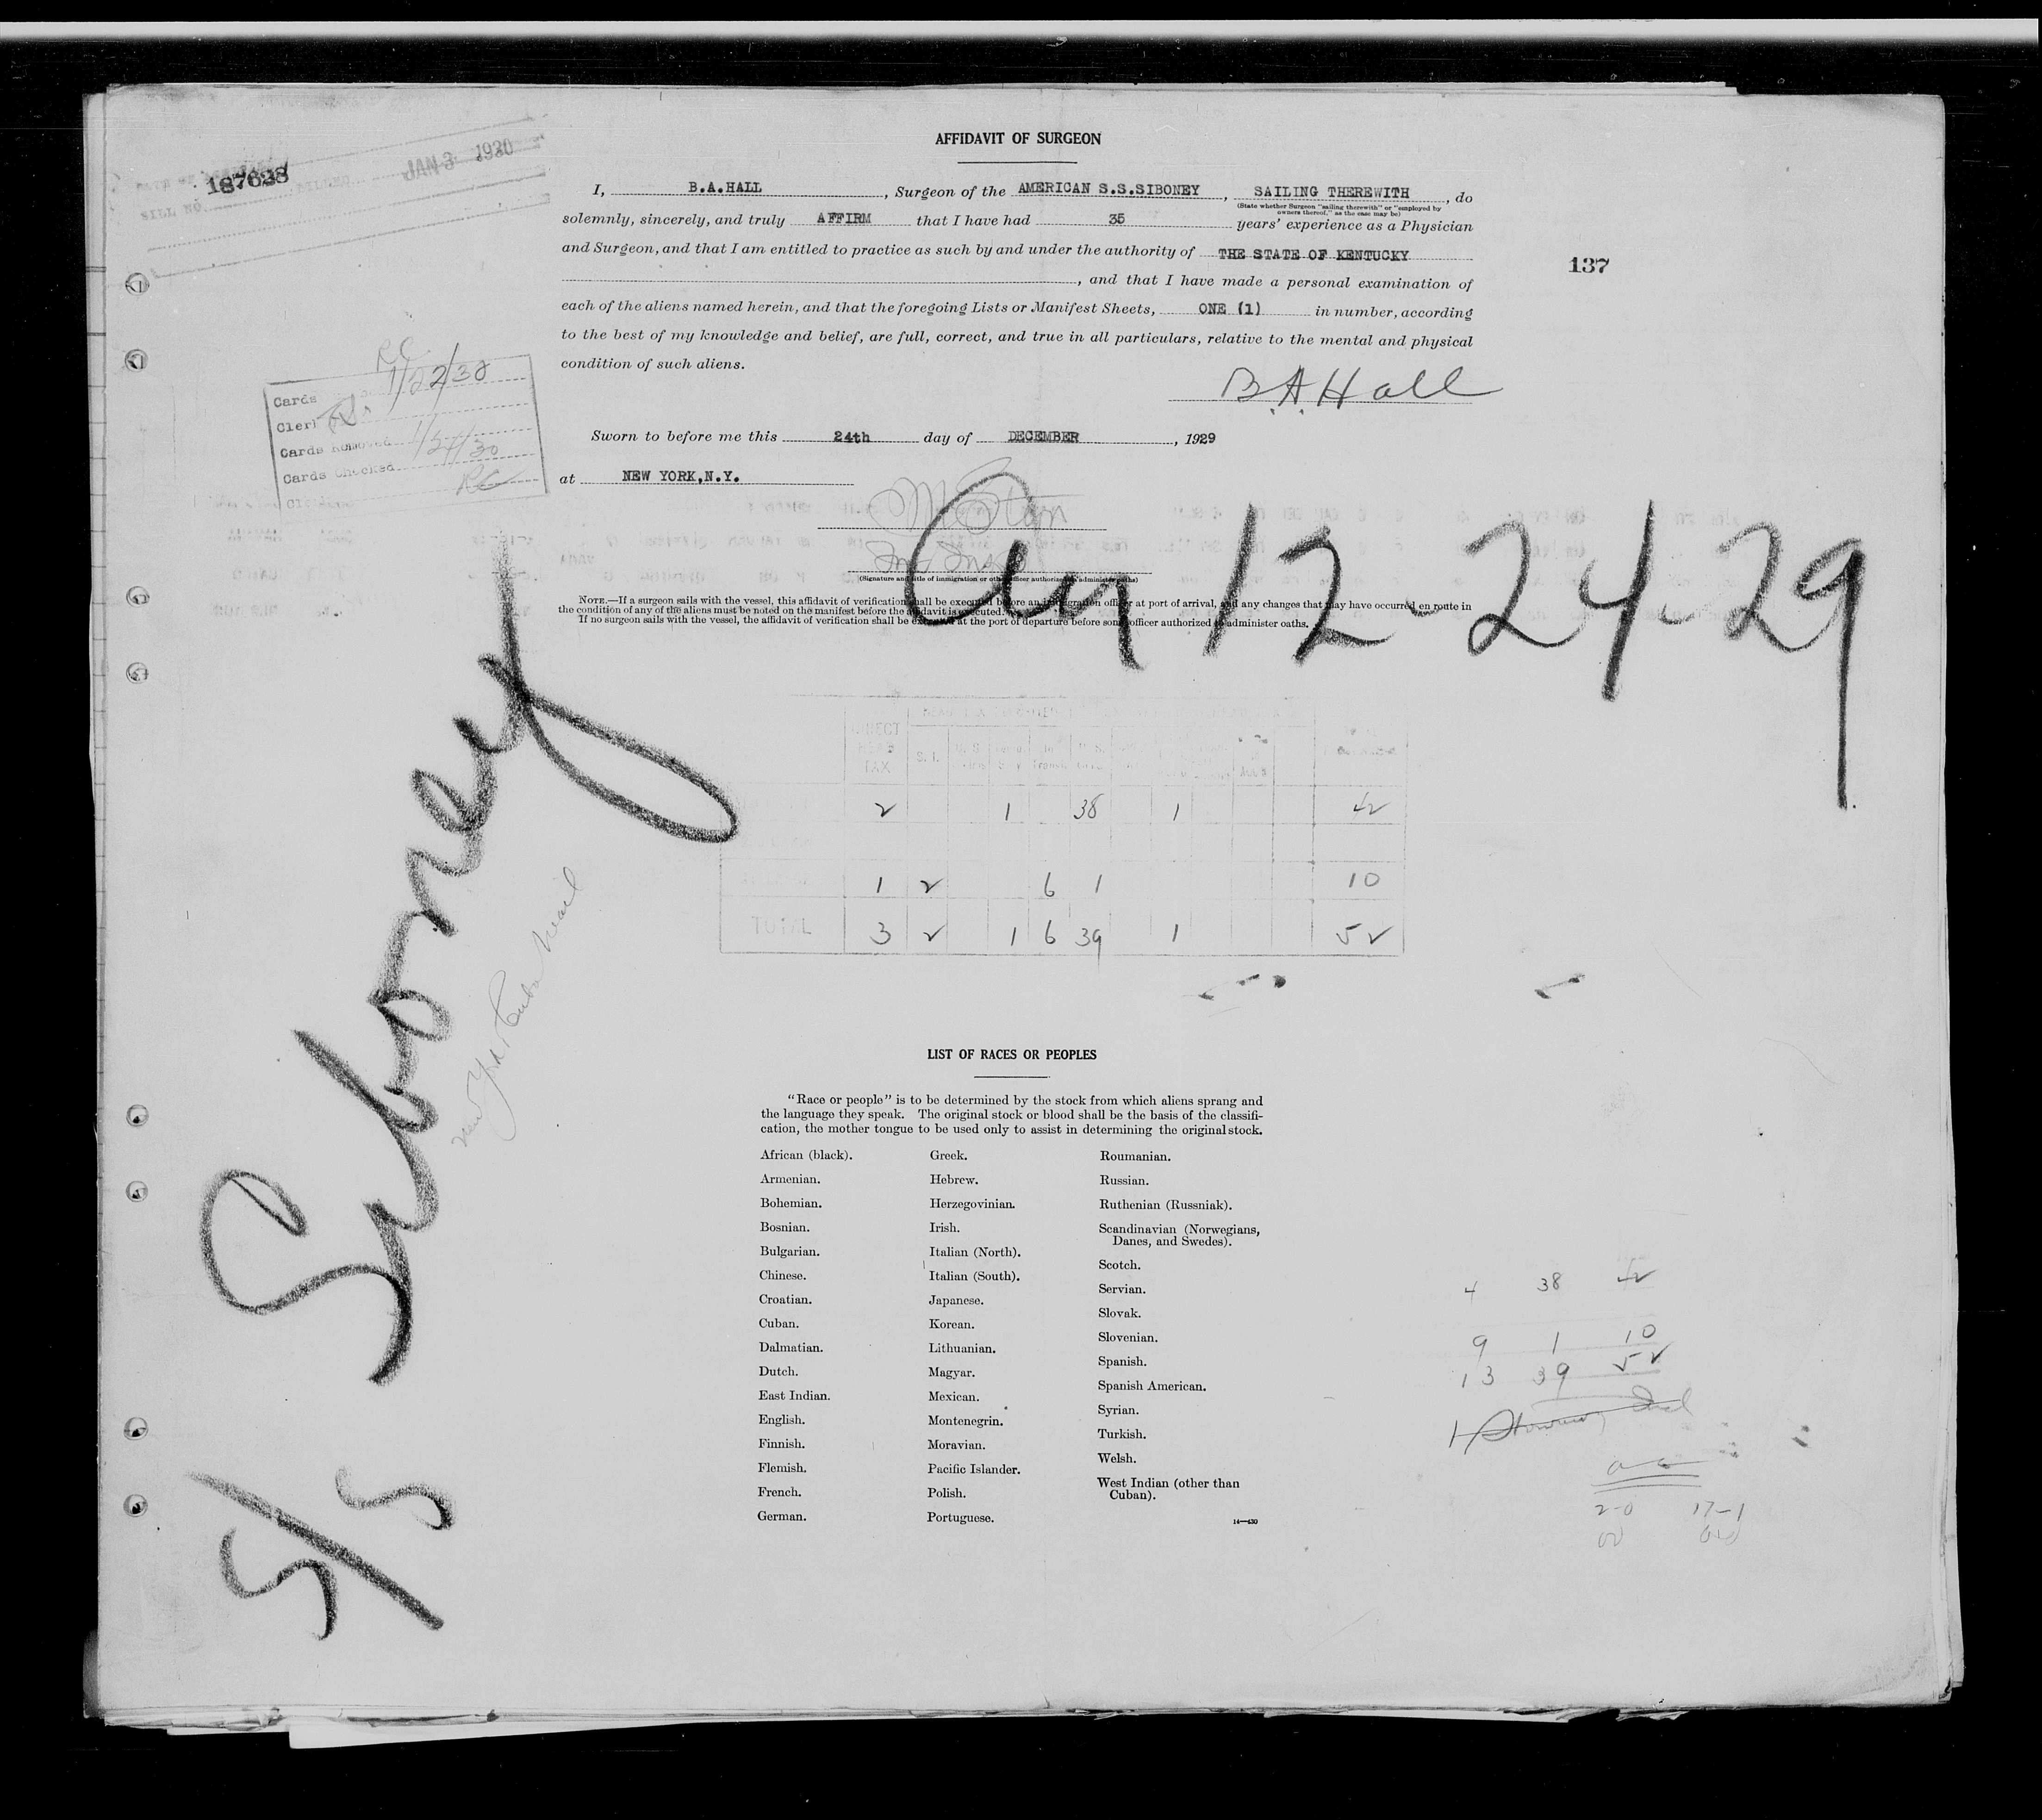 AFFIDAVIT OF SURGEON
187638
JAN 3 1930
I, B.A.HALL, Surgeon of the AMERICAN S.S.SIBONEY, SAILING THEREWITH, do
(State whether Surgeon "sailing therewith" or "employed by
owners thereof," as the case may be)
solemnly, sincerely, and truly AFFIRM that I have had 35 years' experience as a Physician
and Surgeon, and that I am entitled to practice as such by and under the authority of THE STATE OF KENTUCKY
137
, and that I have made a personal examination of
each of the aliens named herein, and that the foregoing Lists or Manifest Sheets, ONE (1) in number, according
to the best of my knowledge and belief, are full, correct, and true in all particulars, relative to the mental and physical
condition of such aliens.
B.A.Hall
RC
Cards 1/22/30
Clerk
Cards Removed
Cards Checked
RC
Sworn to before me this 24th day of DECEMBER, 1929
at NEW YORK, N.Y.
(Signature and title of immigration or other officer authorized to administer oaths)
12-24-29
NOTE.—If a surgeon sails with the vessel, this affidavit of verification shall be executed before an immigration officer at port of arrival, and any changes that may have occurred en route in
the condition of any of the aliens must be noted on the manifest before the affidavit is executed.
If no surgeon sails with the vessel, the affidavit of verification shall be executed at the port of departure before some officer authorized to administer oaths.
S/S Siboney
New York Cuba Mail
TAX S. I.
2 1 38 1 42
1 2 6 1 10
TOTAL 3 2 1 6 39 1 52
LIST OF RACES OR PEOPLES
"Race or people" is to be determined by the stock from which aliens sprang and
the language they speak. The original stock or blood shall be the basis of the classifi-
cation, the mother tongue to be used only to assist in determining the original stock.
African (black).
Armenian.
Bohemian.
Bosnian.
Bulgarian.
Chinese.
Croatian.
Cuban.
Dalmatian.
Dutch.
East Indian.
English.
Finnish.
Flemish.
French.
German.
Greek.
Hebrew.
Herzegovinian.
Irish.
Italian (North).
Italian (South).
Japanese.
Korean.
Lithuanian.
Magyar.
Mexican.
Montenegrin.
Moravian.
Pacific Islander.
Polish.
Portuguese.
Roumanian.
Russian.
Ruthenian (Russniak).
Scandinavian (Norwegians,
Danes, and Swedes).
Scotch.
Servian.
Slovak.
Slovenian.
Spanish.
Spanish American.
Syrian.
Turkish.
Welsh.
West Indian (other than
Cuban).
14—430
4 38 42
9 1 10
13 39 52
2-0 17-1